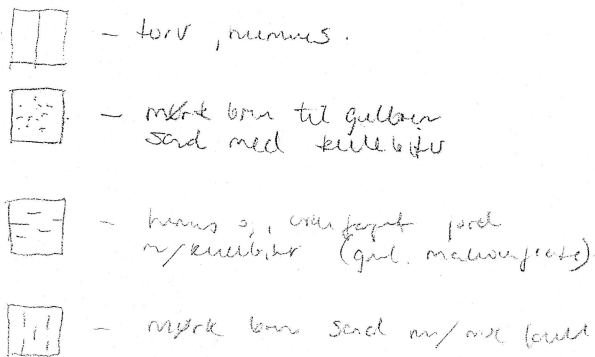 - torv, humus.
- mørk brun til gulbrun
sand med kullbiter
- humus og jord
m/kullbiter (gml. markoverflate)
- mørk brun sand m/ mye kull